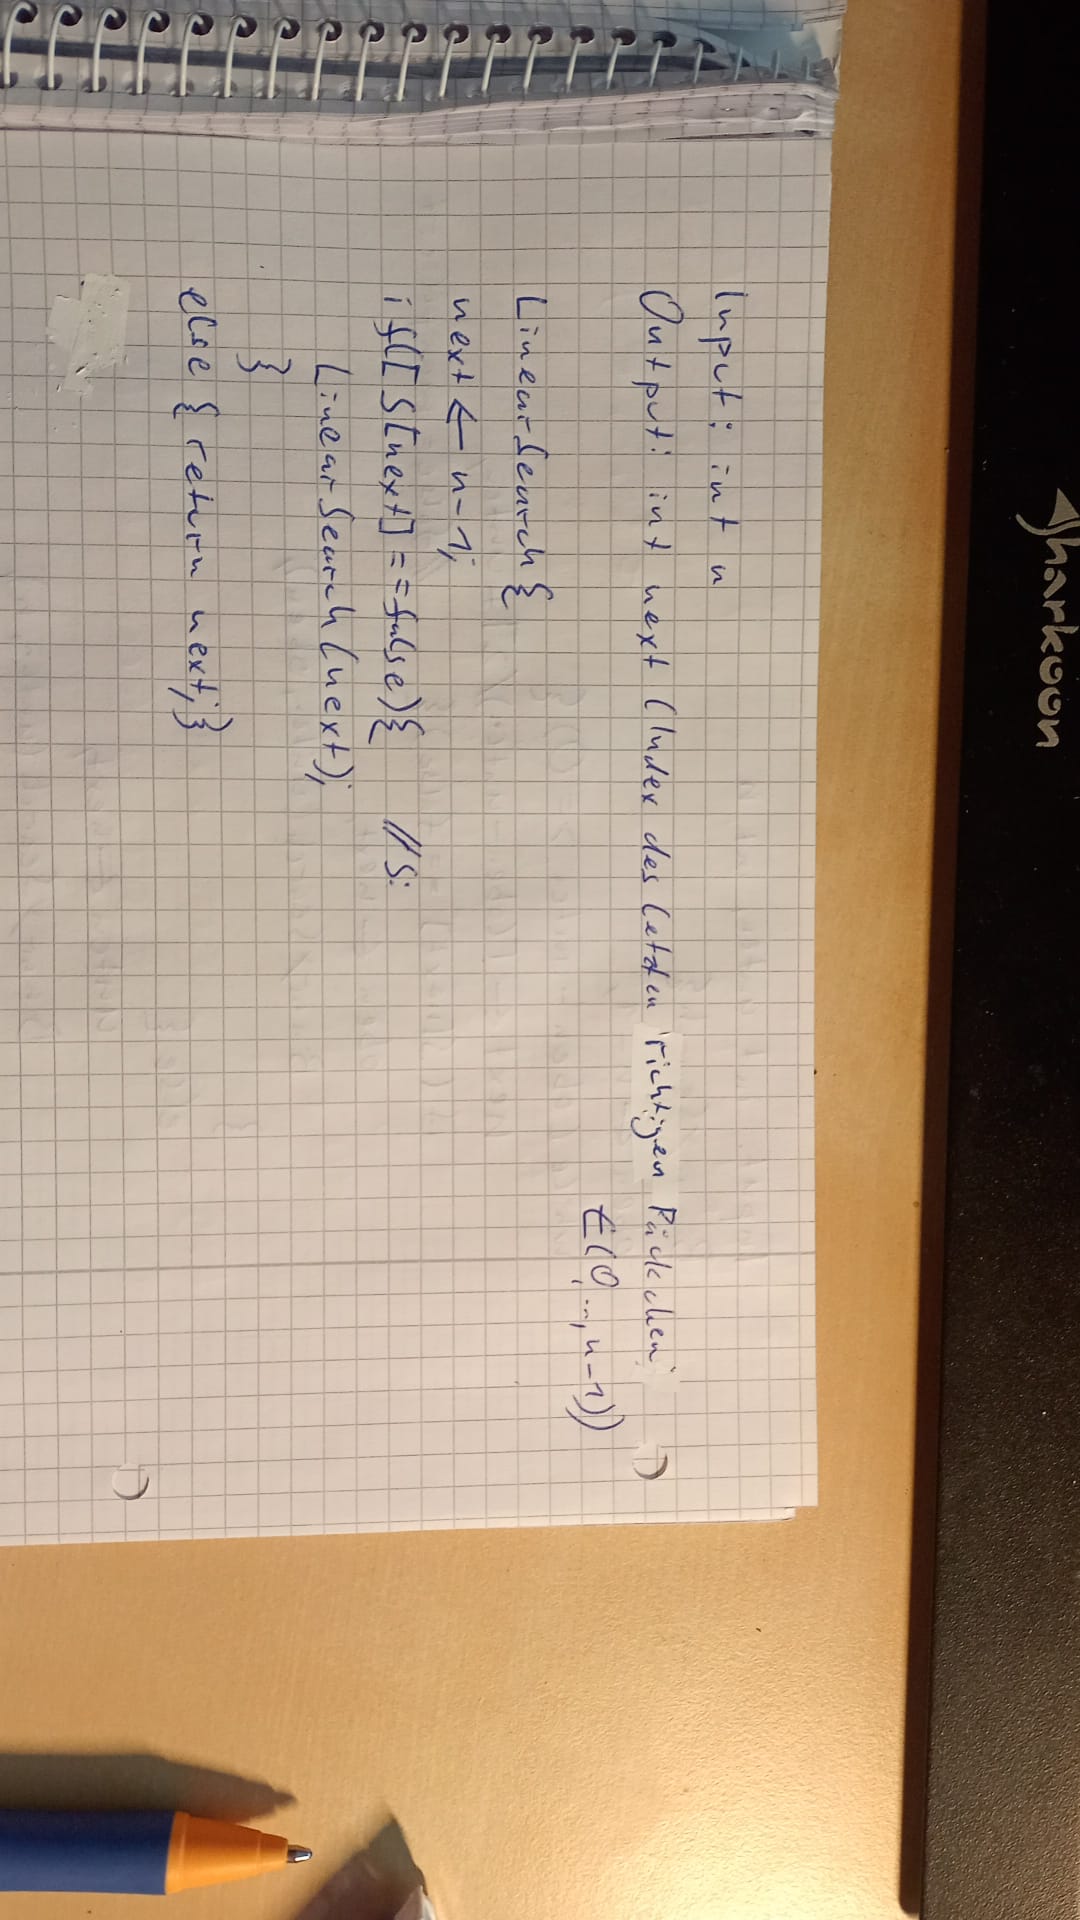 Sharkoon
Input: int n
Output: int next (Index des letzten richtigen Päckchen
∈(0,..,n-1))
LinearSearch{
next ← n-1;
if([S[next]==false){ //S:
LinearSearch(next);
}
else { return next;}